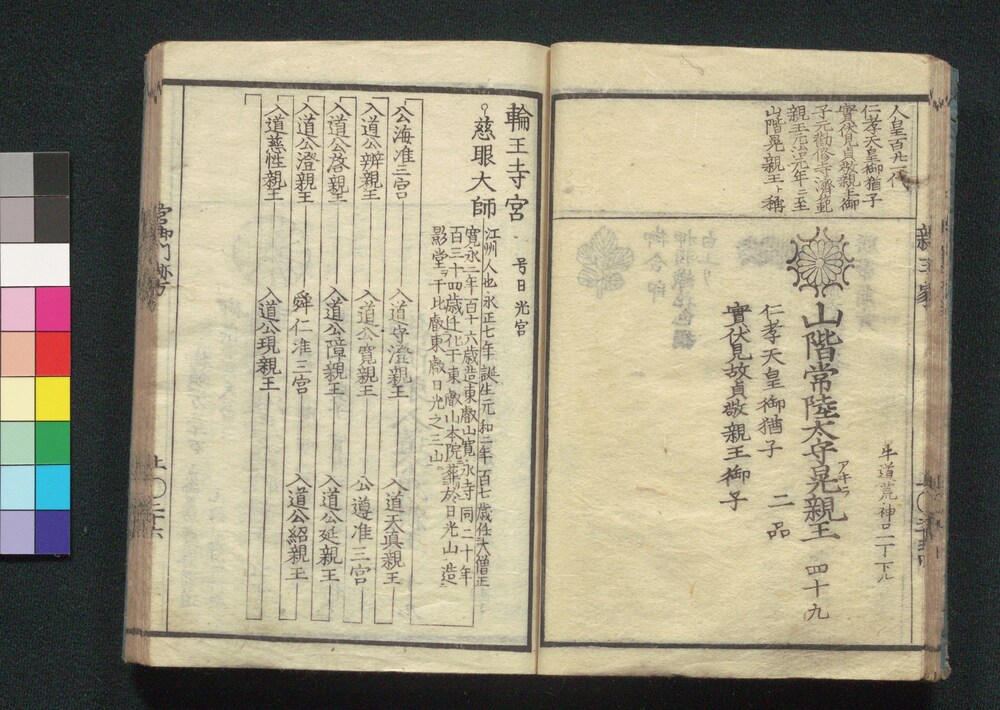 人皇百廿一代
仁孝天皇御猶子
實伏見貞敬親王御
子元勸修寺濟範
親王元治元年ニ至
山階晃親王ト稱
親王家
牛道荒神口二丁下ル
山階常陸太守晃親王 四十九
アキラ
二品
仁孝天皇御猶子
實伏見故貞敬親王御子
輪王寺宮 号日光宮
慈眼大師
江州人也永正七年誕生元和二年百七歳任大僧正
寛永二年百十六歳造東叡山寛永寺同二十年
百三十四歳迁化于東叡山本院葬於日光山造
影堂于比叡東叡日光之三山
公海准三宮
入道守澄親王
入道天眞親王
入道公辨親王
入道公寛親王
公遵准三宮
入道公啓親王
入道公障親王
入道公延親王
入道公澄親王
舜仁准三宮
入道公紹親王
入道慈性親王
入道公現親王
宮御門跡方
上〇二十六